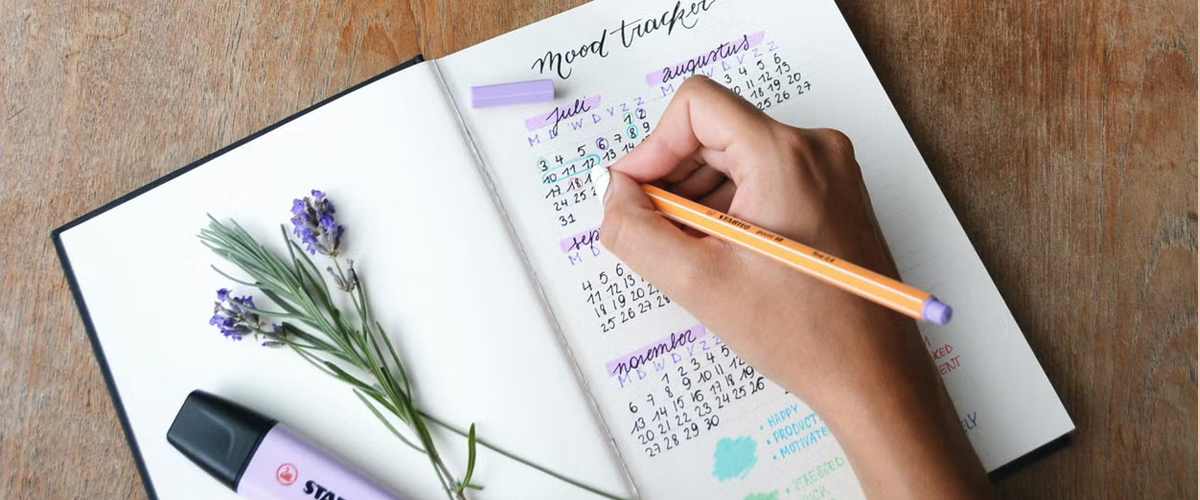 mood tracker
juli
M D W D V Z Z
1 2
3 4 5 6 7 8 9
10 11 12 13 14
17 18 1
24 25 2
31
augustus
M W D V Z Z
3 4 5 6
10 11 12 13
18 19 20
25 26 27
sep
M D
4 5 6
11 12 13
18 19 20
25 26 27 28
november
M D W D V Z Z
1 2 3 4 5
6 7 8 9 10 11 12
13 14 15 16 17 18 19
20 21 22 23 24 25 26
27 28 29 30
• HAPPY
• PRODUCT
• MOTIVATE
• STRESSED
STABILO point 88
STAB